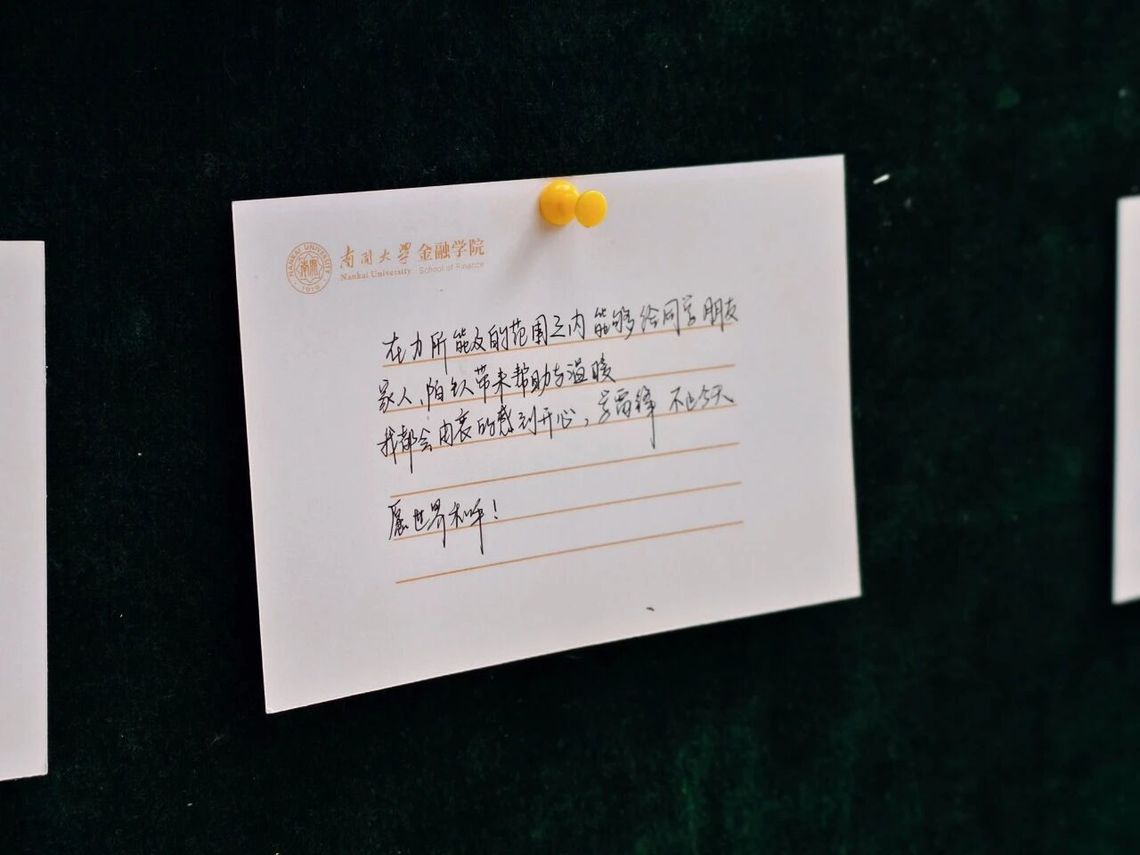 NANKAI UNIVERSITY
南開
1919
南開大學 金融学院
Nankai University School of Finance
在力所能及的范围之内能够给同学朋友
家人、陌生人带来帮助与温暖
我都会由衷的感到开心，学雷锋 不止今天
愿世界和平！